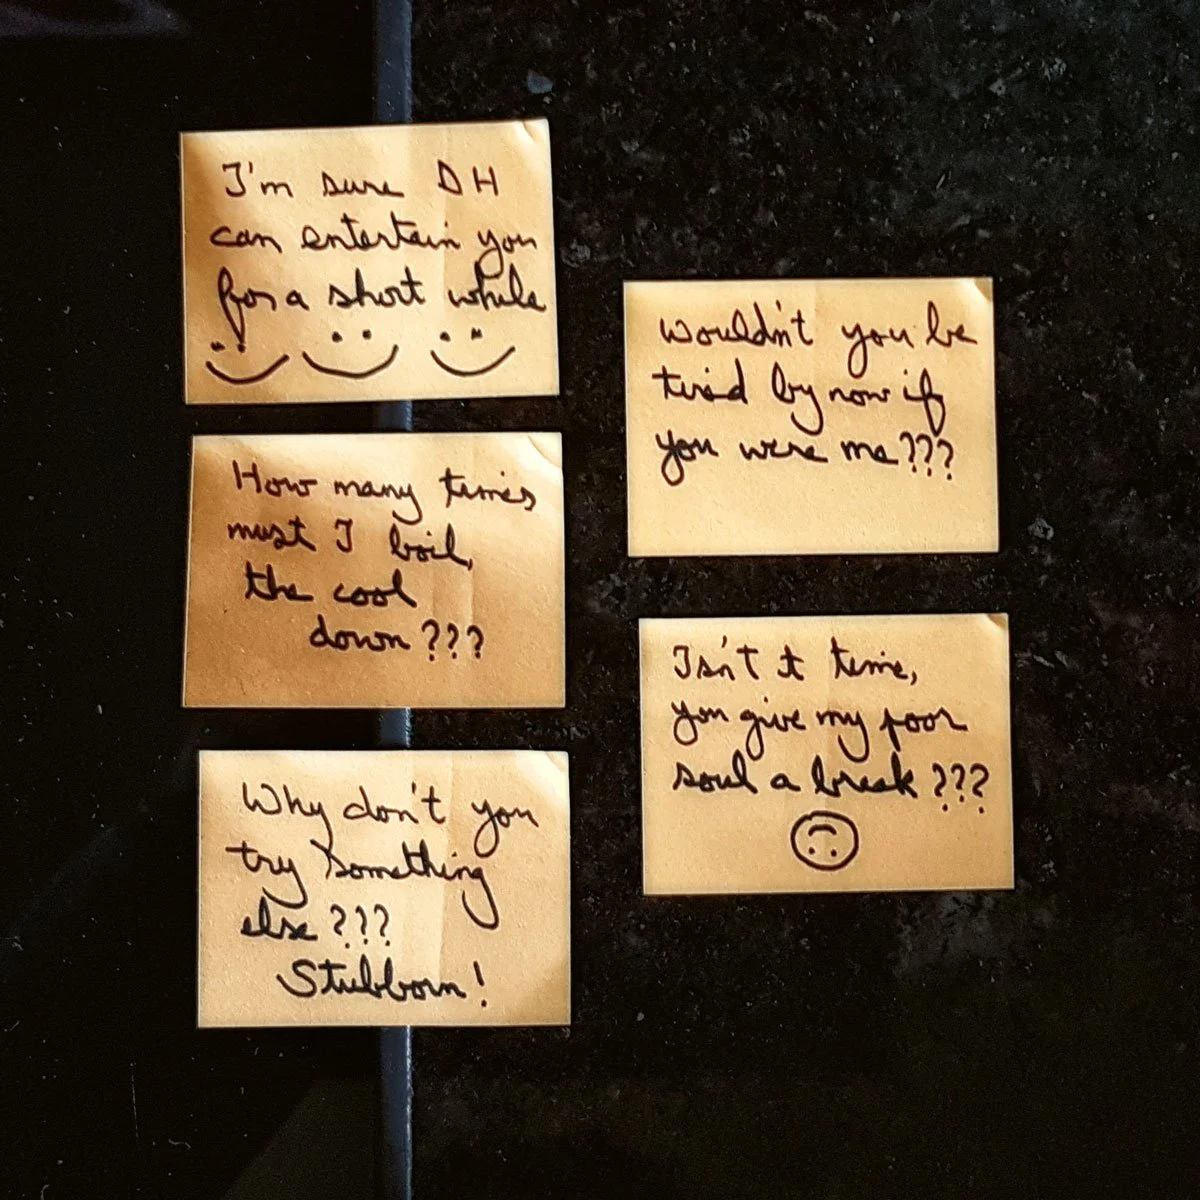 I'm sure DH
can entertain you
for a short while
How many times
must I boil,
the cool
down???
Why don't you
try something
else???
Stubborn!
Wouldn't you be
tired by now if
you were me???
Isn't it time,
you give my poor
soul a break???